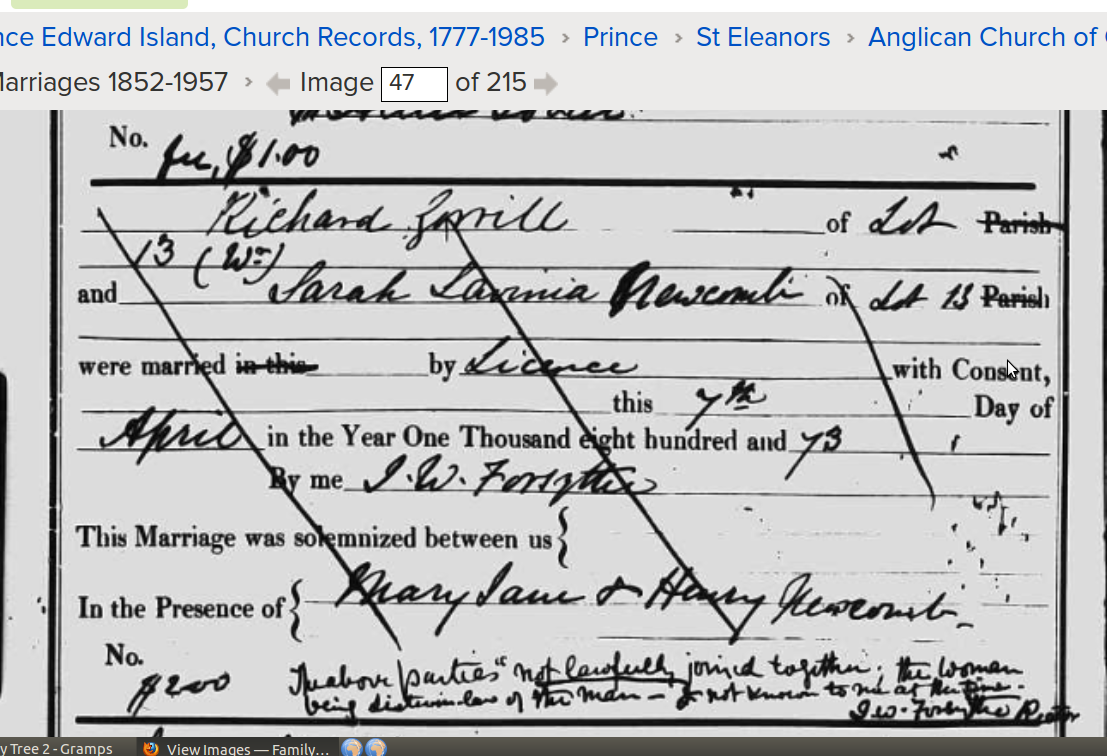 nce Edward Island, Church Records, 1777-1985 › Prince › St Eleanors › Anglican Church of
Marriages 1852-1957 › Image 47 of 215
No.
fee, $1.00
Richard Gorrill of Lot Parish
13 (Wr)
and Sarah Lavinia Newcomb of Lot 13 Parish
were married in this by Licence with Consent,
this 7th Day of
April in the Year One Thousand eight hundred and 73
By me J. W. Forsythe
This Marriage was solemnized between us {
In the Presence of { Mary Jane & Henry Newcomb
No.
$2.00 The above "parties" not lawfully joined together; the woman
being sister-in-law of the man – & not known to me at the time.
J. W. Forsythe Rector
y Tree 2 - Gramps View Images — Family...